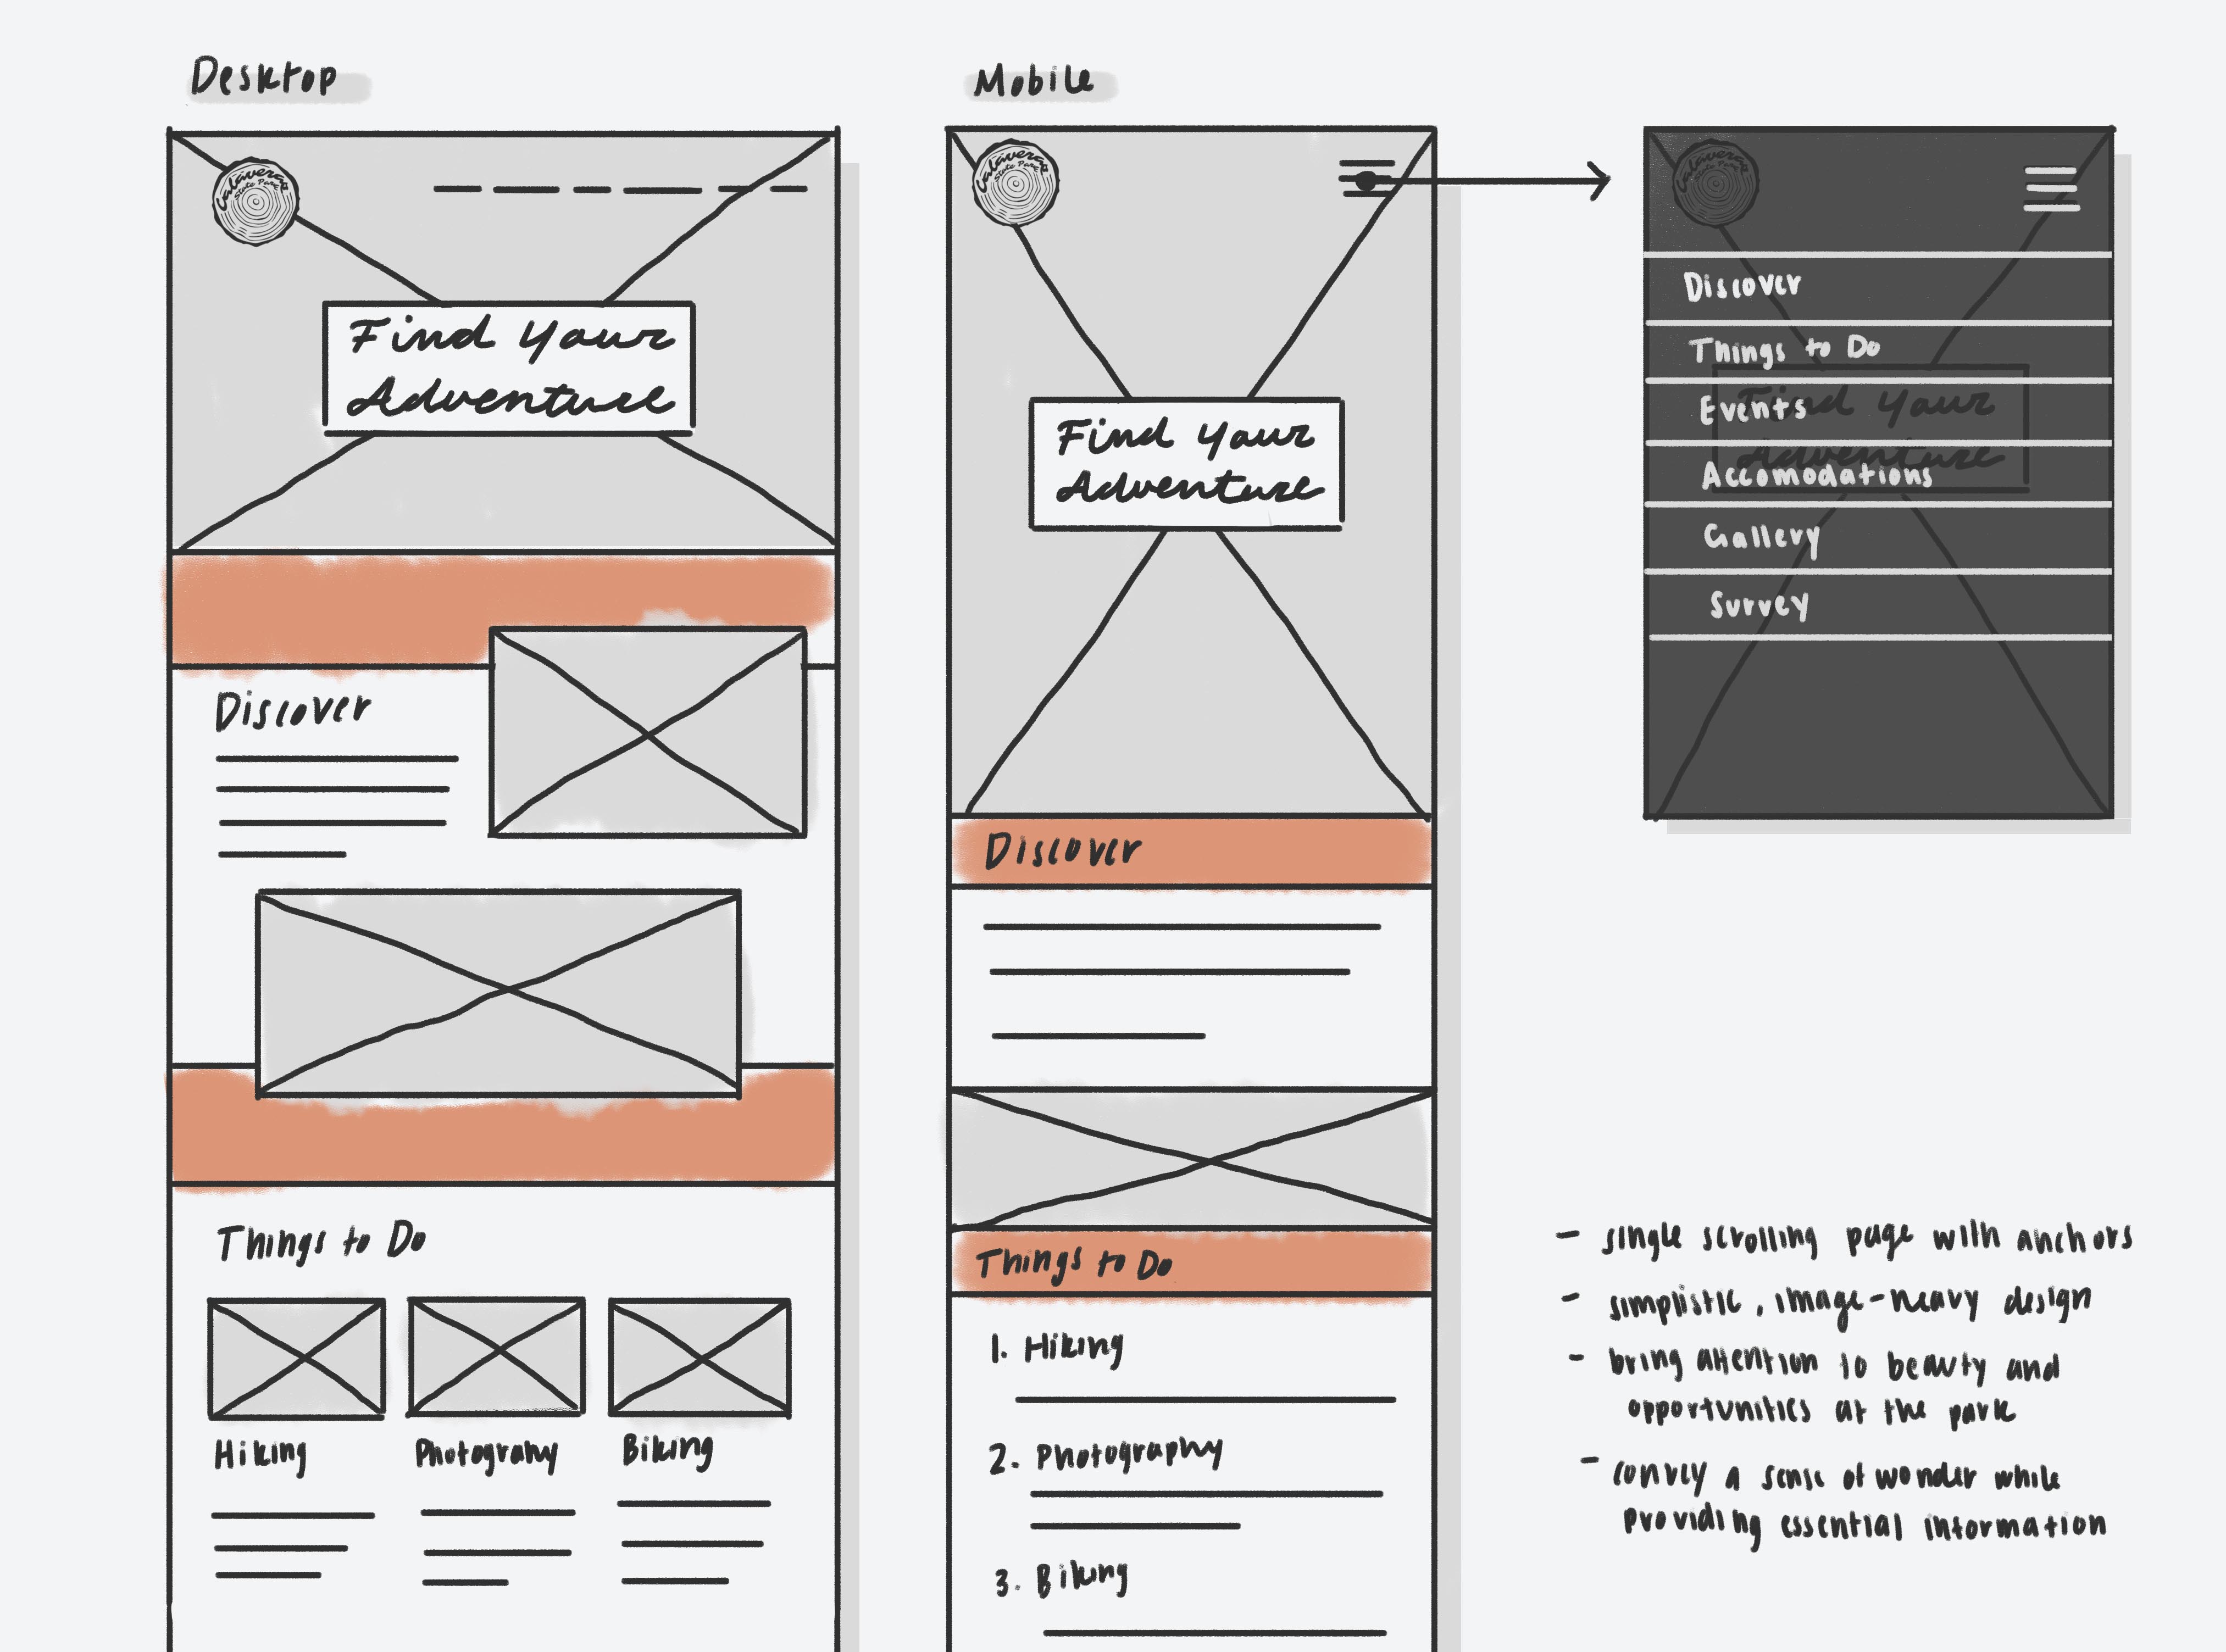 Desktop
Calaveras
State Park
Find Your
Adventure
Discover
Things to Do
Hiking
Photograhy
Biking
Mobile
Calaveras
State Park
Find Your
Adventure
Discover
Things to Do
1. Hiking
2. Photography
3. Biking
Calaveras
State Park
Discover
Things to Do
Events
Find Your
Adventure
Accomodations
Gallery
Survey
- single scrolling page with anchors
- simplistic, image-heavy design
- bring attention to beauty and
opportunities at the park
- convey a sense of wonder while
providing essential information